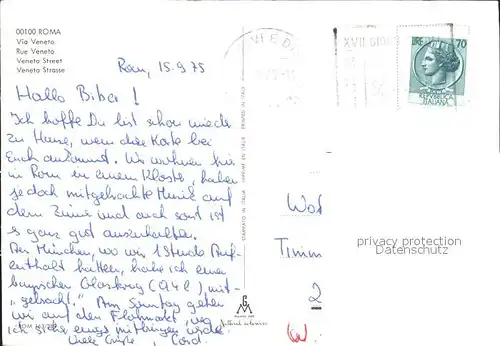 00100 ROMA
Via Veneto
Rue Veneto
Veneto Street
Veneto Strasse
Rom, 15.9.75
Hallo Biber!
Ich hoffe Du bist schon wieder
zu Hause, wenn diese Karte bei
Euch ankommt. Wir wohnen hier
in Rom in einem Kloster, haben
jedoch mitgebrachte Musik auf
dem Zimmer und auch sonst ist
es ganz gut auszuhalten.
Aus München, wo wir 1 Stunde Auf-
enthalt hatten, habe ich einen
bayrischen Glaskrug (0,4 l) mit-
"gebracht". Am Sonntag gehen
wir auf den Flohmarkt, wo
ich sicher einiges mitbringen werde.
Viele Grüße, Cord.
STAMPATO IN ITALIA
PRINTED IN ITALY
XVII GIO
LIRE 70
REPUBBLICA
ITALIANA
Wo
Timm
2
privacy protection
Datenschutz